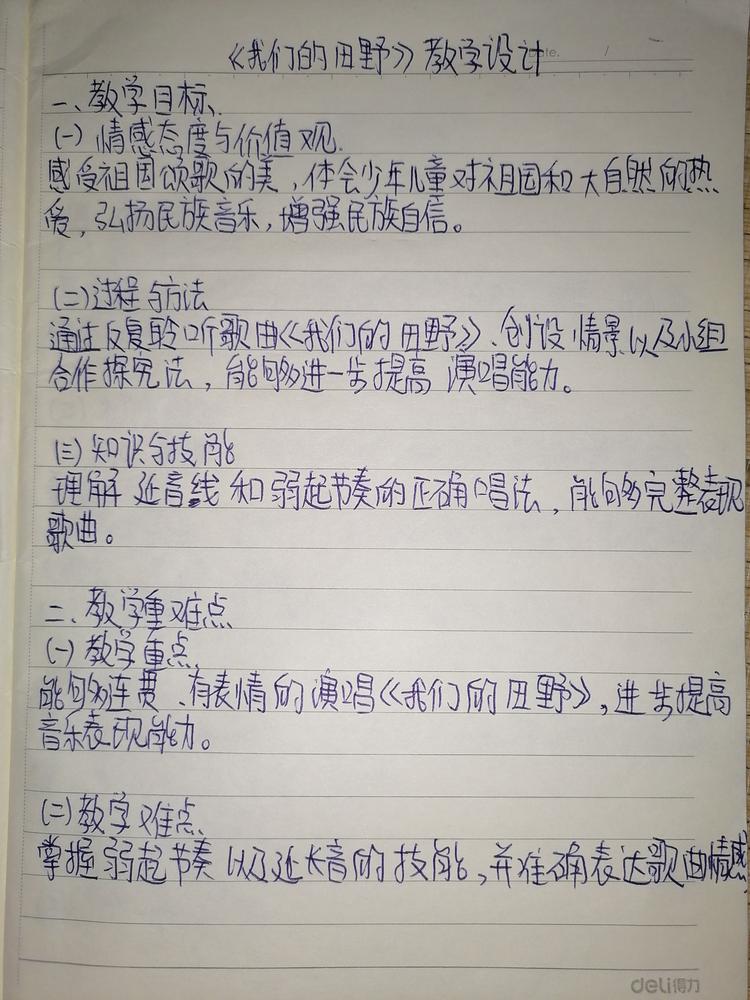 《我们的田野》教学设计
te. /
一、教学目标
(一) 情感态度与价值观
感受祖国颂歌的美，体会少年儿童对祖国和大自然的热
爱，弘扬民族音乐，增强民族自信。
(二)过程与方法
通过反复聆听歌曲《我们的田野》、创设情景以及小组
合作探究法，能够进一步提高演唱能力。
(三)知识与技能
理解延音线和弱起节奏的正确唱法，能够完整表现
歌曲。
二、教学重难点
(一)教学重点
能够连贯、有表情的演唱《我们的田野》，进步提高
音乐表现能力。
(二)教学难点
掌握弱起节奏以及延长音的技能，并准确表达歌曲情感
deli得力